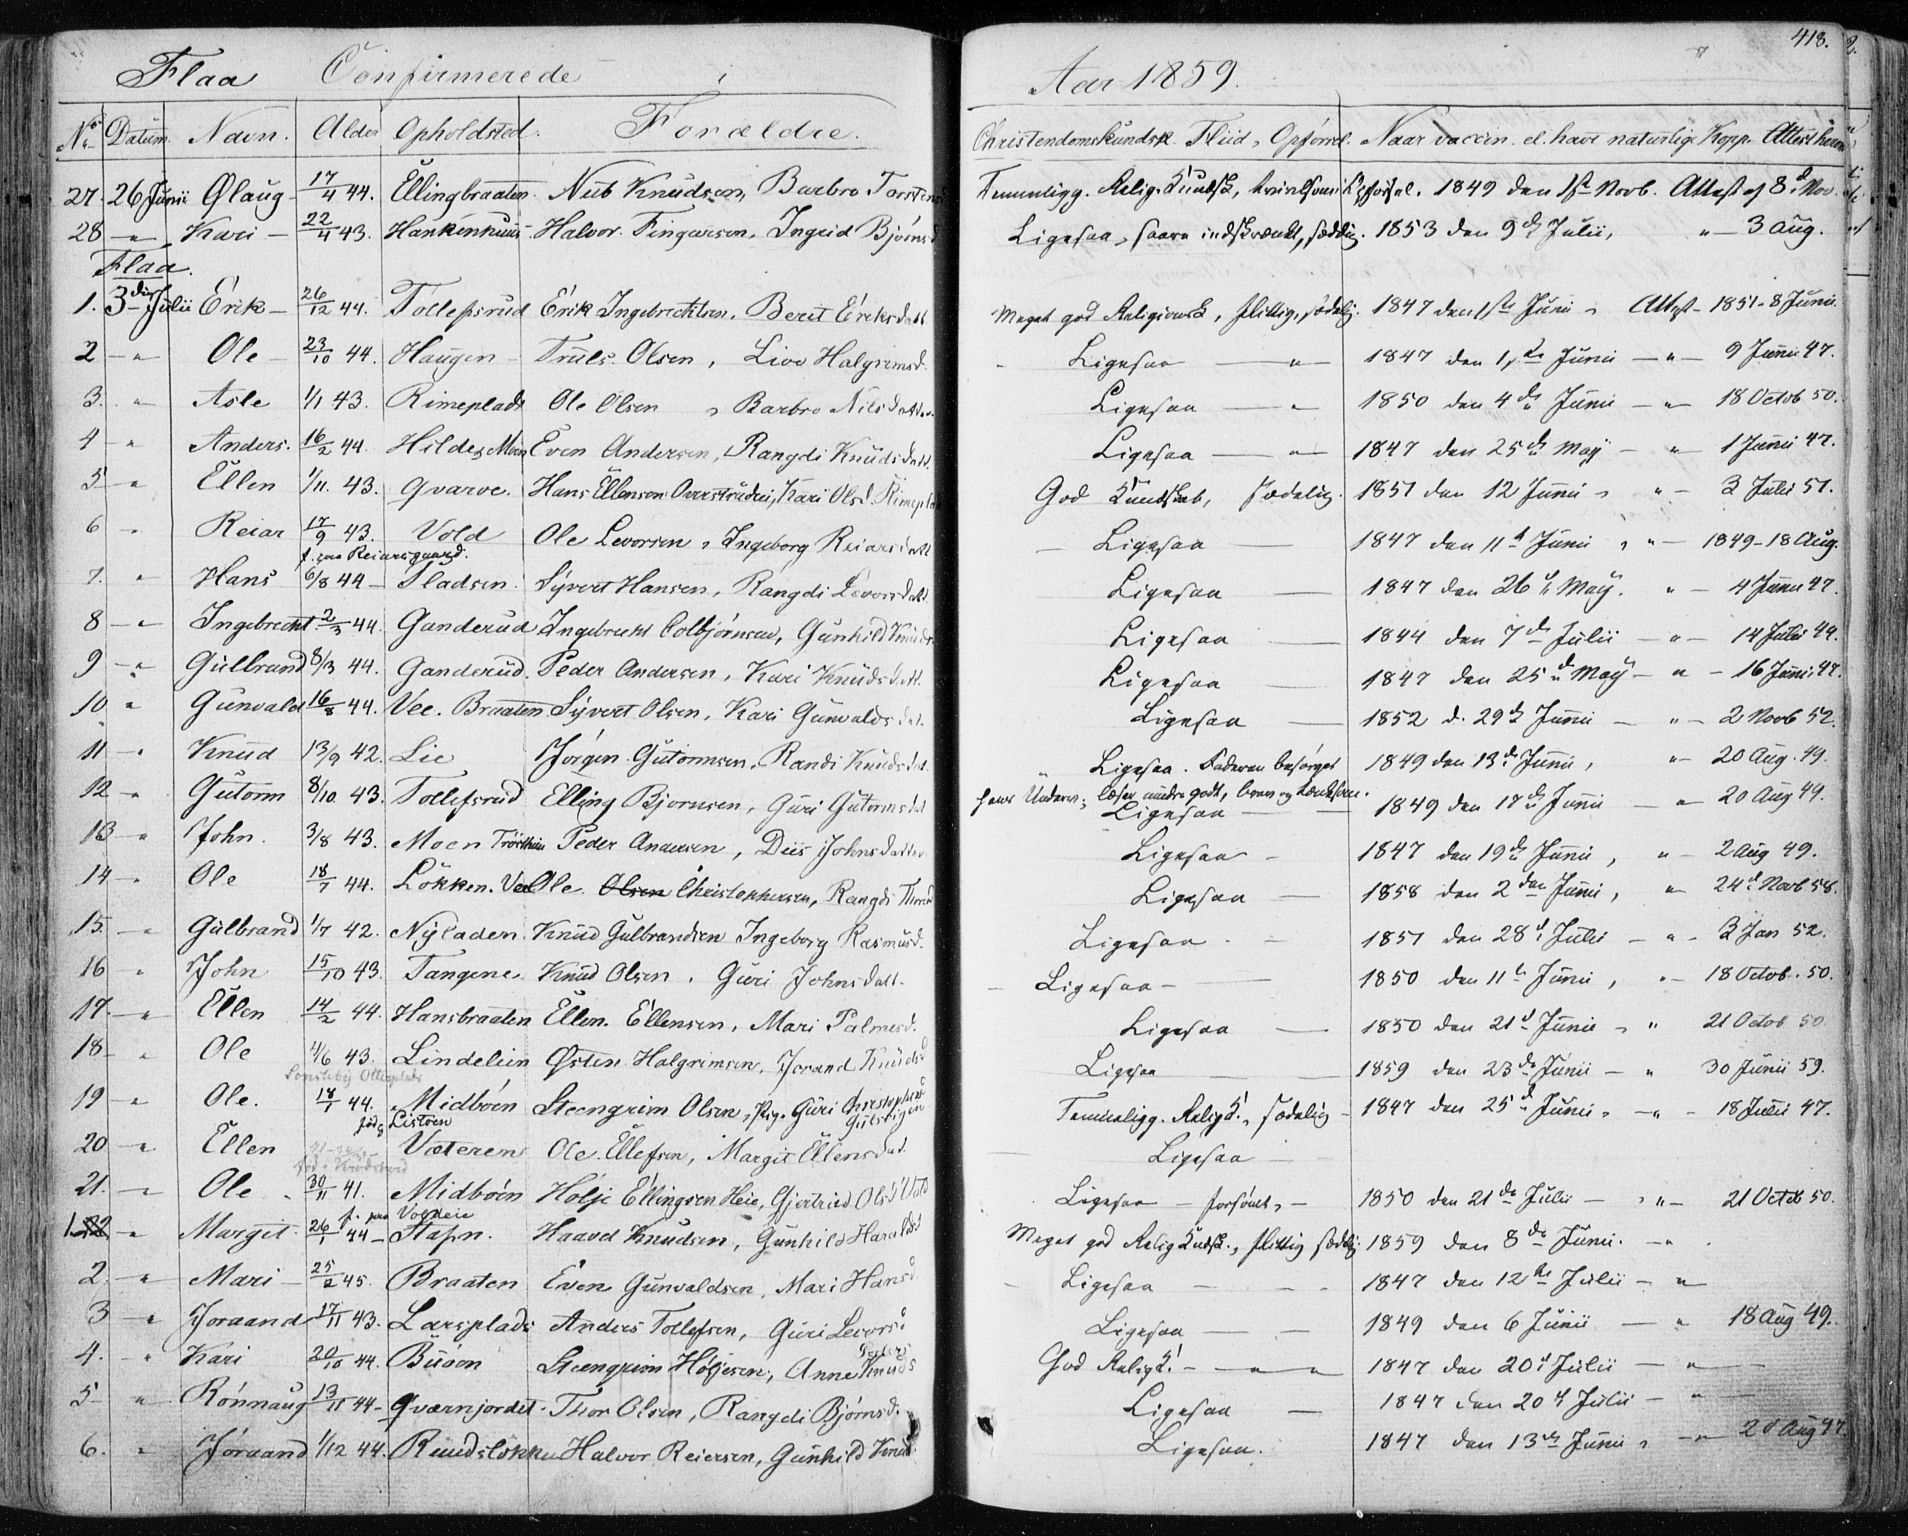 Flaa Confirmerede i Aar 1859. 418.
No Datum. Navn. Alder Opholdsted. Forældre. Christendomskundsk. Fliid, Opførsel. Naar vaccin. el. havt naturlige Kopp. Attest herom
27. 26 Junii Ølaug 17/4 44. Ellingbraaten. Nub Knudsen, Barbro Torstens Temmeligg. Relig. Kundsk, Opførsel. 1849 den 1ste Novb. Attest af 8de Nov.
28 " Kari 22/4 43. Halvor Fingarsen, Ingrid Bjørnsd Ligesaa, saare indskrænket, sædelig. 1853 den 9de Julii, " 3 Aug.
Flaa.
1. 3die Julii Erik 26/12 44. Tollefsrud Erik Ingebrechtsen. Berit Eriksdatt Meget god Religionsk, flittig, sædelig. 1847 den 1ste Junii, Attest 1851 - 8 Junii.
2 " Ole 23/10 44. Haugen Truls Olsen, Live Halgrimsd. Ligesaa " 1847 den 1ste Junii " 9 Junii 47.
3. " Asle 1/1 43. Rimeplads Ole Olsen, Barbro Nilsdatter Ligesaa " 1850 den 4de Junii " 18 Octob 50.
4 " Anders. 16/2 44. Hilde Moen Even Andersen, Rangdi Knudsdatt. Ligesaa " 1847 den 25de May " 1 Junii 47.
5 " Ellen 1/11. 43. Qvarve. Hans Ellensen Kari Olsd. God Kundskab, sædelig. 1851 den 12 Junii, " 3 Julii 51.
6 " Reiar 17/9 43. Vold Ole Levorsen, Ingeborg Reiarsdatt Ligesaa 1847 den 11te Junii, " 1849 - 18 Aug.
f. paa Reiarsgaard.
7. " Hans 6/8 44 Pladsen. Syvert Hansen, Rangdi Levorsdatt. Ligesaa 1847 den 26de May. " 4 Junii 47.
8 " Ingebrecht 2/3 44. Ganderud Ingebrecht Colbjørnsen, Gunhild Knuds Ligesaa 1844 den 7de Julii " 14 Julii 44.
9 " Gulbrand 8/3 44. Ganderud. Peder Andersen, Kari Knudsdatt. Ligesaa 1847 den 25de May " 16 Junii 47.
10 " Gunvald 16/8 44. Vee. Braaten Syvert Olsen, Kari Gunvaldsdat. Ligesaa 1852 d. 29de Junii " 2 Novb 52.
11 " Knud 13/9 42. Lie Jørgen Gutormsen, Randi Knudsdat. Ligesaa. Faderen besørget 1849 den 13de Junii, " 20 Aug. 49.
hans Underv.; læser mindre godt, brav og tænksom.
12 " Gutorm 8/10. 43. Tollefsrud Elling Bjørnsen, Guri Gutormsdat Ligesaa 1849 den 17de Junii " 20 Aug 49.
13 " John. 3/8 43. Moen Peder Andersen, Deis Johnsdatter Ligesaa 1847 den 19de Junii, " 2 Aug 49.
14 " Ole 18/7 44. Løkken. Vee Ole Olsen Christophersen, Rangdi Ligesaa 1858 den 2den Junii, " 24d Novb 58.
15. " Gulbrand 1/7 42. Nyladen. Knud Gulbrandsen Ingeborg Rasmusd. Ligesaa. 1851 den 28de Julii " 3 Jan 52.
16 " John 15/10 43. Tangene. Knud Olsen, Guri Johnsdatt. Ligesaa 1850 den 11te Junii, " 18 Octob. 50.
17. " Ellen 14/2 44. Hansbraaten Ellen Ellensen, Mari Palmesd. Ligesaa 1850 den 21d Junii, " 21 Octob 50
18 " Ole 4/6 43. Lindelien Østen Halgrimsen, Jorand Knudsd Ligesaa 1859 den 23de Junii " 30 Junii 59.
19 " Ole. 18/1 44. Midbøen Steengrim Olsen, Pige Guri Christophersd Temmeligg. Relig. K., sædelig 1847 den 25d Junii, " 18 Julii 47.
Listøen Gulsvigen
20 " Ellen Væteren Ole Ellefsen, Margit Ellensdat. Ligesaa
21. " Ole 30/11 41. Midbøen Holje Ellingsen Heie, Gjertrud Olsd Ligesaa forsømt, 1850 den 21de Julii " 21 Octob 50.
f. paa
1. " Margit 26/1 44 Stafn. Haavel Knudsen, Gunhild Haraldsd Meget god Relig Kundsk., flittig sædelig. 1859 den 8de Junii. "
2. " Mari 25/2 45. Braaten Even Gunvaldsen, Mari Hansd Ligesaa 1847 den 12te Julii "
3 " Joraand 17/11 43. Larsplads Anders Tollefsen, Guri Levorsd Ligesaa 1849 den 6 Junii " 18 Aug 49.
4. " Kari 20/10 44. Buøen Steengrim Høljesen, Anne Knuds God Relig K. " 1847 den 20d Julii "
5 " Rønnaug 13/11 44 Qværnjordet. Thor Olsen, Rangdi Bjørnsd. Ligesaa 1847 den 20d Julii "
6. " Jøraand 1/12 44. Rudsløkken Halvor Reiersen, Gunhild Knud Ligesaa. 1847 den 13de Junii, " 20 Aug 47